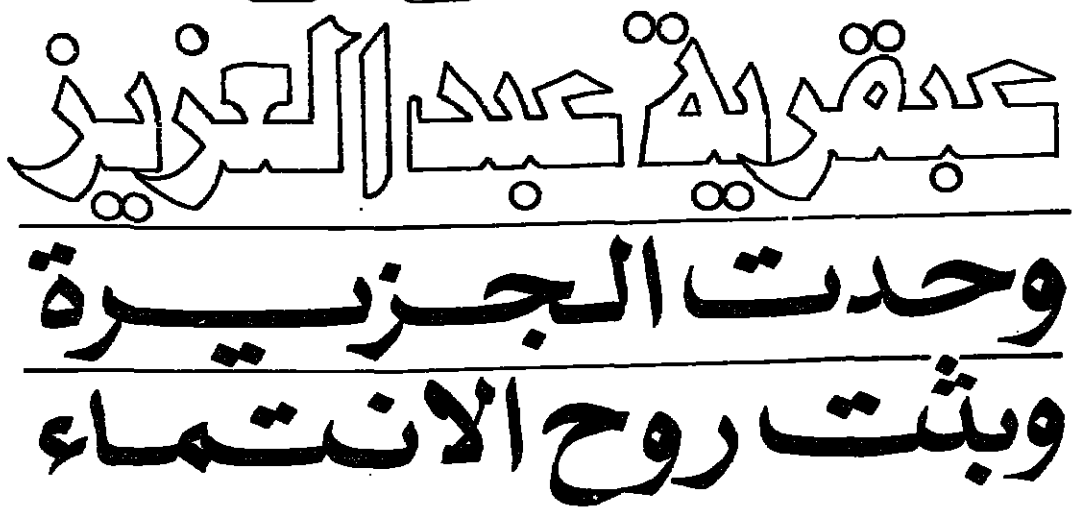 عبقرية عبد العزيز
وحدت الجزيرة
وبثت روح الانتماء